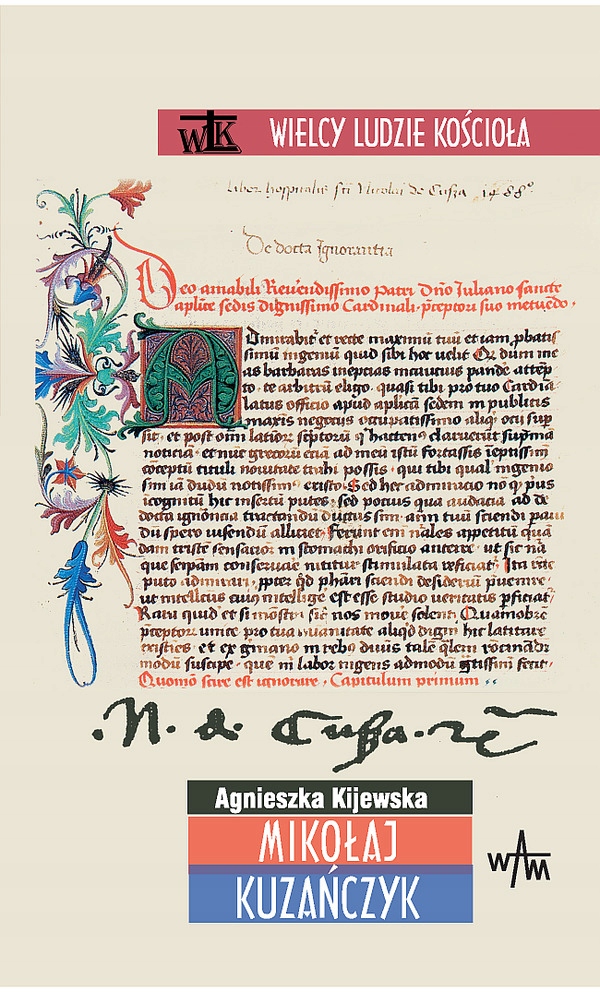 WTK WIELCY LUDZIE KOŚCIOŁA
Liber hospitalis sci Nicolai de Cußa 1488
De docta Ignorantia
Deo amabili Reuendissimo patri Dno Juliano sancte
aplice sedis dignissimo Cardinali p̄ceptori suo metuedo
Admirabit et recte maximū tuū et iam pbatis
simū ingeniū quid sibi hoc velit Qz dum me
as barbaras ineptias incautius pande attēp
to te arbitrū eligo quasi tibi pro tuo Cardia
latus officio apud aplicā sedem in publicis
maxis negocijs occupatissimo aliqd ocij sup
sit et post om latior scptorū q hacten claruerūt supma
noticiā et nūc grecorū eciā ad meū
tituli nouitate trahi possis qui tibi qual ingenio
sim iā dudū notissim existo Sed hec admiracio no qd pus
icognitū hic insertū putes sed pocius qua audacia ad de
docta ignorācia tractandū ductus sim aim tuū sciendi
du spero visendū alliciet Ferunt em nales appetitū quā
dam triste sensacioz in stomachi orificio anteire ut sic na
que seipam conseruare nititur stimulata reficiat Ita recte
puto admirari ppter qd phari sciendi desideriū preuenire
ut intellctus cuius intellige est esse studio veritatis pficiat
Rara quid et si monstr sic nos moue solent Quamobrē
p̄ceptorum unice pro tua humanitate aliqd digni hic latitare
existies et ex germano in reb diuis talē qlem rocinādi
modū suscipe que m labor ingens admodū gtissim fecit
Quomo scire est ignorare Capitulum primum
N. de Cußa.
Agnieszka Kijewska
MIKOŁAJ
KUZAŃCZYK
WAM